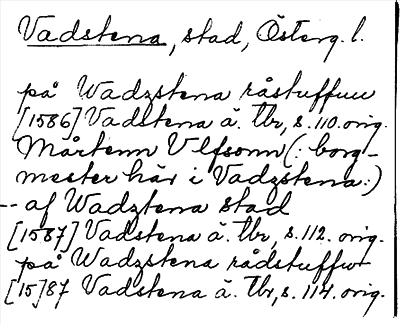 Vadstena, stad, Österg. l.
på Wadzstena råstuffuu
[1586] Vadstena ä. tbr, s. 110. orig.
Mårtenn Ulfsonn (: borg-
mester här i Vadzstena:)
-- af Wadztena stad
[1587] Vadstena ä. Tbr, s. 112. orig.
på Wadzstena rådstuffw
[15]87 Vadstena ä. Tbr, s. 114. orig.